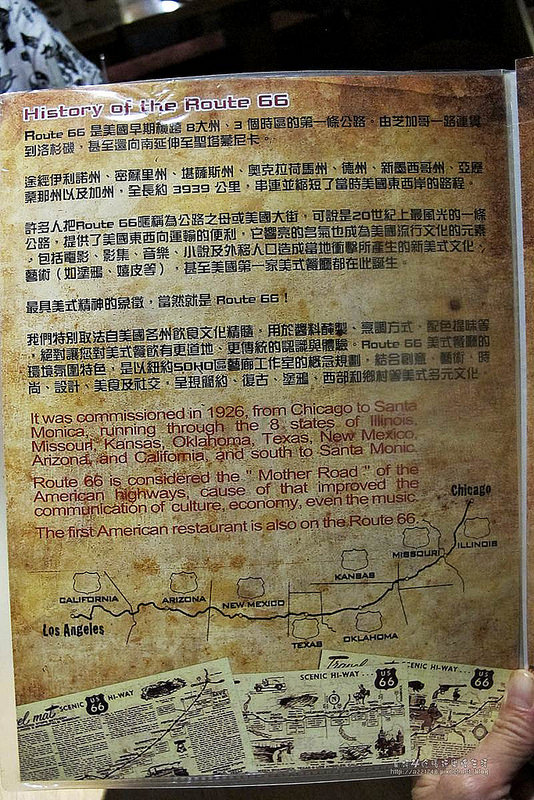 History of the Route 66
Route 66 是美國早期橫跨 8大州、3 個時區的第一條公路。由芝加哥一路連貫
到洛杉磯，甚至還向南延伸至聖塔蒙尼卡。
途經伊利諾州、密蘇里州、堪薩斯州、奧克拉荷馬州、德州、新墨西哥州、亞歷
桑那州以及加州，全長約 3939 公里，串連並縮短了當時美國東西岸的路程。
許多人把Route 66暱稱為公路之母或美國大街，可說是20世紀上最風光的一條
公路，提供了美國東西向運輸的便利，它響亮的名氣也成為美國流行文化的元素
，包括電影、影集、音樂、小說及外移人口造成當地衝擊所產生的新美式文化、
藝術（如塗鴉、嬉皮等），甚至美國第一家美式餐廳都在此誕生。
最具美式精神的象徵，當然就是 Route 66！
我們特別取法自美國各州飲食文化精髓，用於醬料醃製、烹調方式、配色提味等
，絕對讓您對美式餐飲有更道地、更傳統的認識與體驗。Route 66 美式餐廳的
環境氛圍特色，是以紐約SOHO區藝廊工作室的概念規劃，結合創意、藝術、時
尚、設計、美食及社交，呈現簡約、復古、塗鴉、西部和鄉村等美式多元文化
It was commissioned in 1926, from Chicago to Santa
Monica, running through the 8 states of Illinois,
Missouri, Kansas, Oklahoma, Texas, New Mexico,
Arizona, and California, and south to Santa Monic.
Route 66 is considered the " Mother Road " of the
American highways, cause of that improved the
communication of culture, economy, even the music.
The first American restaurant is also on the Route 66.
Chicago
ILLINOIS
MISSOURI
KANSAS
CALIFORNIA
ARIZONA
NEW MEXICO
Los Angeles
TEXAS
OKLAHOMA
Travel
SCENIC HI-WAY
US 66
SCENIC HI-WAY
US 66
mat
SCENIC HI-WAY
US 66